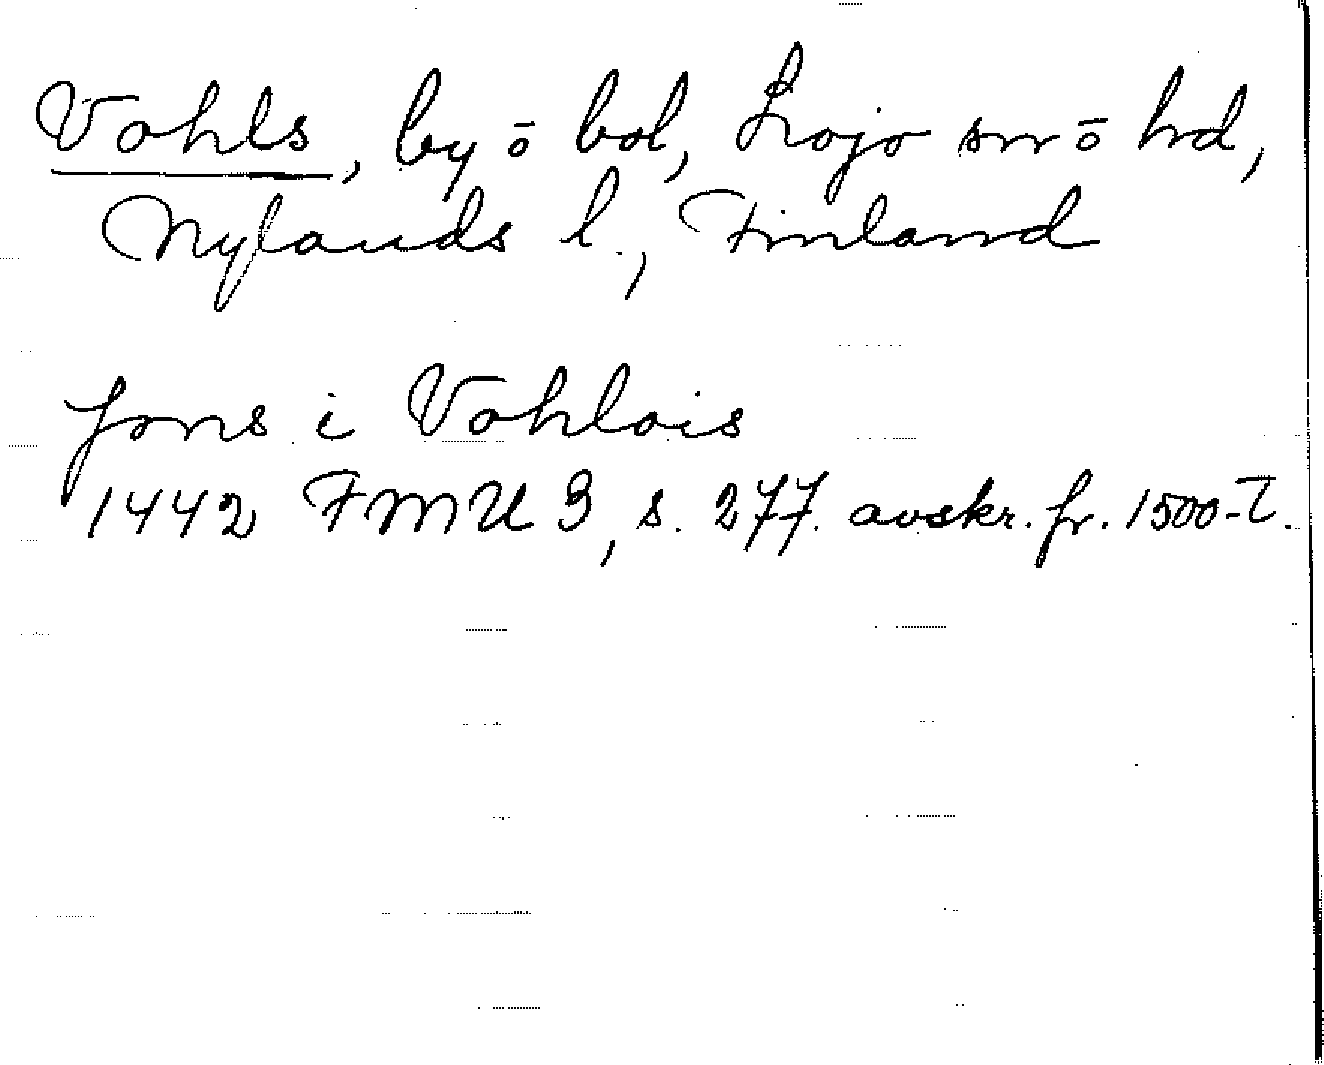 Vohls, by ō bol, Lojo sn ō hd,
Nylands l., Finland
Jons i Vohlois
1442 FMU 3, s. 277. avskr. fr. 1500-t.